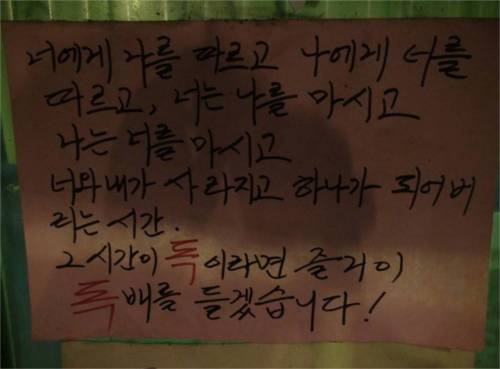 너에게 나를 따르고 나에게 너를
따르고, 너는 나를 마시고
나는 너를 마시고
너와 내가 사라지고 하나가 되어버
리는 시간.
그 시간이 독이라면 즐거이
독배를 들겠습니다!